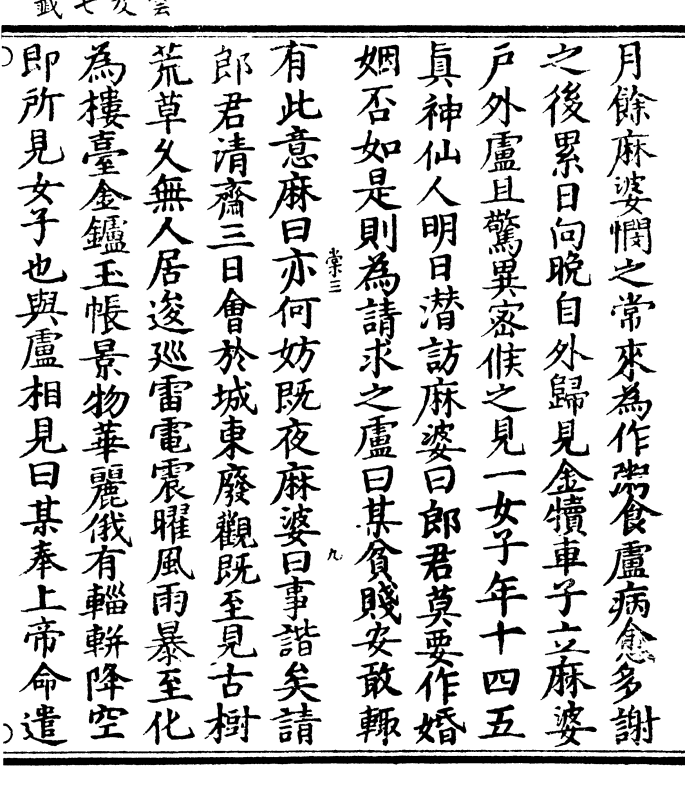 月餘麻婆憫之常來為作粥食盧病愈多謝
之後累日向晚自外歸見金犢車子立麻婆
戶外盧且驚異密候之見一女子年十四五
真神仙人明日潛訪麻婆曰郎君莫要作婚
姻否如是則為請求之盧曰某貧賤安敢輙
棠三
九
有此意麻曰亦何妨既夜麻婆曰事諧矣請
郎君清齋三日會於城東廢觀既至見古樹
荒草久無人居逡巡雷電震曜風雨暴至化
為樓臺金鑪玉帳景物華麗俄有輜軿降空
即所見女子也與盧相見曰某奉上帝命遣